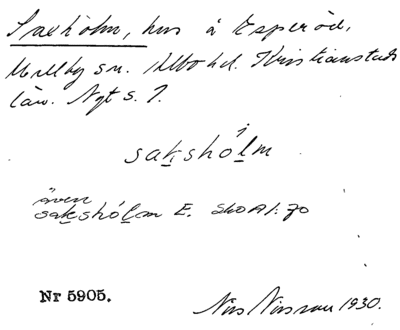 Saxholm, hus å Esperöd,
Mellby sn. Albo hd. Kristianstads
län. Ngt s. 7.
saksholm
även
saksholm E. Skoal: 70
Nr 5905.
Nils Nilsson 1930.